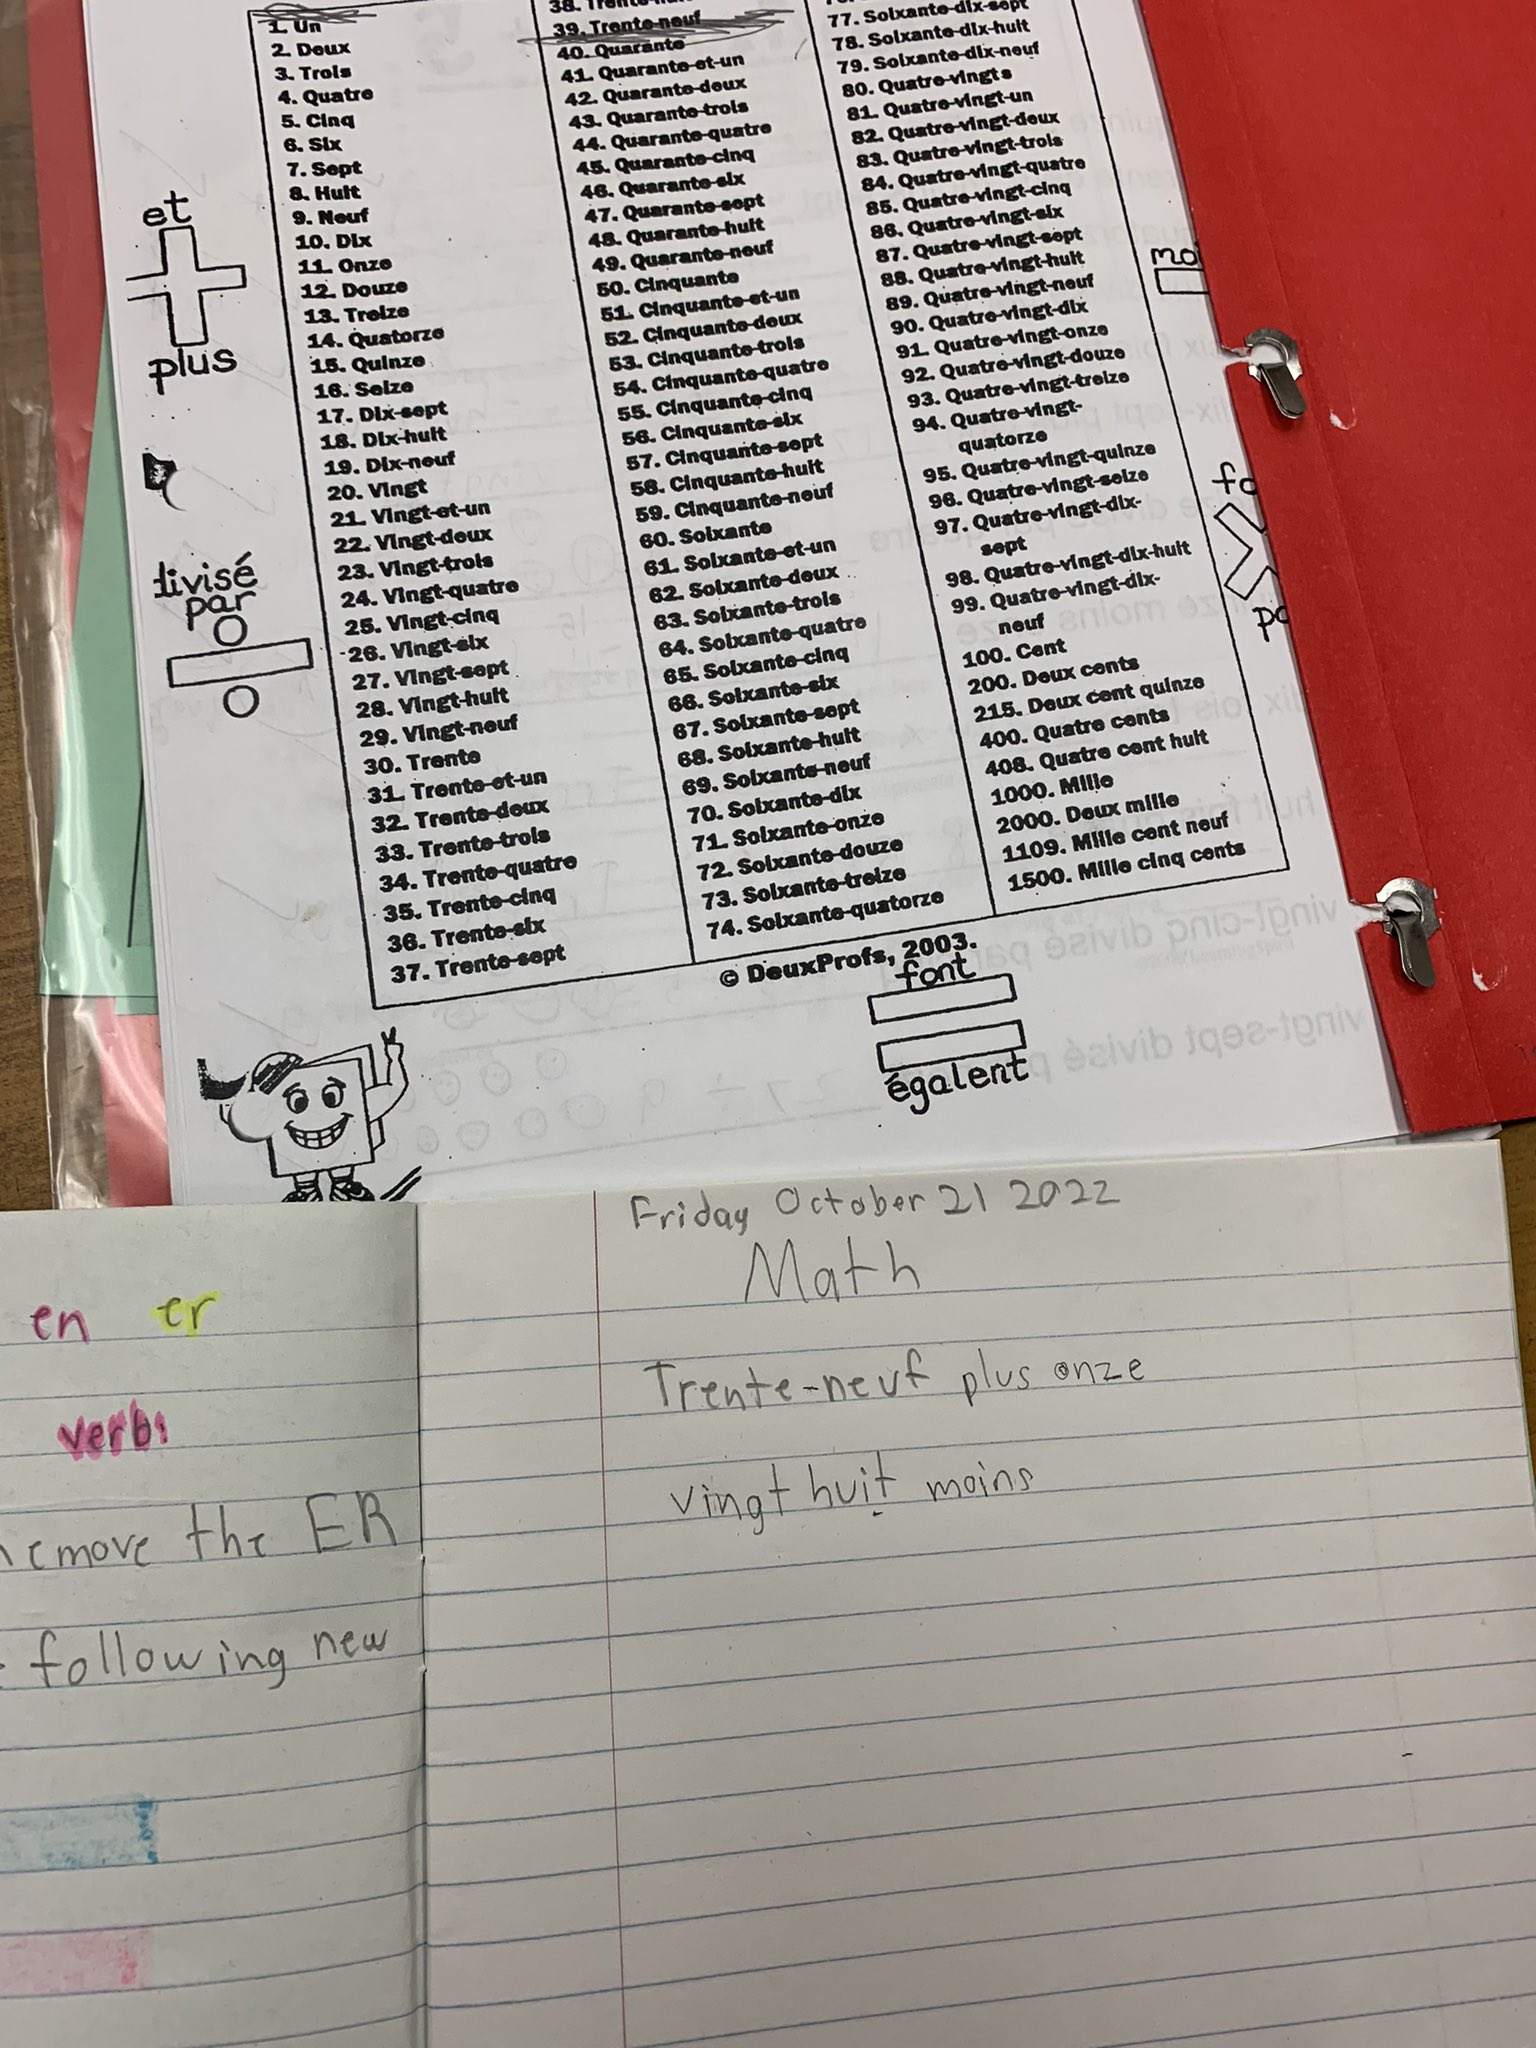 1. Un
2. Deux
3. Trois
4. Quatre
5. Cinq
6. Six
7. Sept
8. Huit
9. Neuf
10. Dix
11. Onze
12. Douze
13. Treize
14. Quatorze
15. Quinze
16. Seize
17. Dix-sept
18. Dix-huit
19. Dix-neuf
20. Vingt
21. Vingt-et-un
22. Vingt-deux
23. Vingt-trois
24. Vingt-quatre
25. Vingt-cinq
26. Vingt-six
27. Vingt-sept
28. Vingt-huit
29. Vingt-neuf
30. Trente
31. Trente-et-un
32. Trente-deux
33. Trente-trois
34. Trente-quatre
35. Trente-cinq
36. Trente-six
37. Trente-sept
38.
39. Trente-neuf
40. Quarante
41. Quarante-et-un
42. Quarante-deux
43. Quarante-trois
44. Quarante-quatre
45. Quarante-cinq
46. Quarante-six
47. Quarante-sept
48. Quarante-huit
49. Quarante-neuf
50. Cinquante
51. Cinquante-et-un
52. Cinquante-deux
53. Cinquante-trois
54. Cinquante-quatre
55. Cinquante-cinq
56. Cinquante-six
57. Cinquante-sept
58. Cinquante-huit
59. Cinquante-neuf
60. Soixante
61. Soixante-et-un
62. Soixante-deux
63. Soixante-trois
64. Soixante-quatre
65. Soixante-cinq
66. Soixante-six
67. Soixante-sept
68. Soixante-huit
69. Soixante-neuf
70. Soixante-dix
71. Soixante-onze
72. Soixante-douze
73. Soixante-treize
74. Soixante-quatorze
77. Soixante-dix-sept
78. Soixante-dix-huit
79. Soixante-dix-neuf
80. Quatre-vingts
81. Quatre-vingt-un
82. Quatre-vingt-deux
83. Quatre-vingt-trois
84. Quatre-vingt-quatre
85. Quatre-vingt-cinq
86. Quatre-vingt-six
87. Quatre-vingt-sept
88. Quatre-vingt-huit
89. Quatre-vingt-neuf
90. Quatre-vingt-dix
91. Quatre-vingt-onze
92. Quatre-vingt-douze
93. Quatre-vingt-treize
94. Quatre-vingt-
quatorze
95. Quatre-vingt-quinze
96. Quatre-vingt-seize
97. Quatre-vingt-dix-
sept
98. Quatre-vingt-dix-huit
99. Quatre-vingt-dix-
neuf
100. Cent
200. Deux cents
215. Deux cent quinze
400. Quatre cents
408. Quatre cent huit
1000. Mille
2000. Deux mille
1109. Mille cent neuf
1500. Mille cinq cents
© DeuxProfs, 2003.
et
plus
divisé
par
font
égalent
Friday October 21 2022
Math
Trente-neuf plus onze
vingt huit moins
en er
verbs
remove the ER
following new